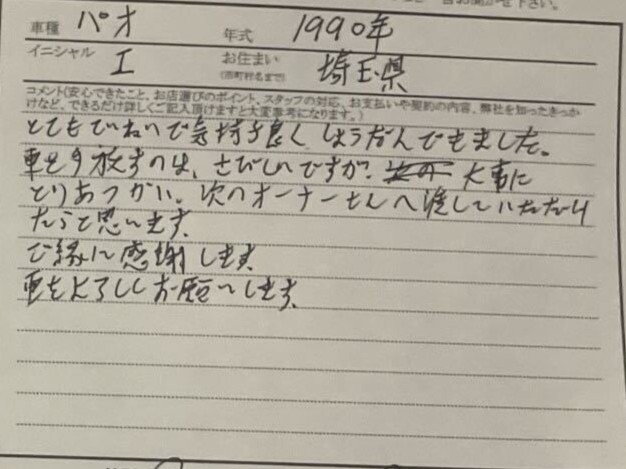 車種 パオ 年式 1990年
イニシャル I お住まい(市町村名まで) 埼玉県
コメント(安心できたこと、お店選びのポイント、スタッフの対応、お支払いや契約の内容、弊社を知ったきっか
けなど、できるだけ詳しくご記入頂けますと大変参考になります。)
とてもていねいで気持ち良くしょうだんできました。
車を手放すのは、さびしいですが、大事に
とりあつかい、次のオーナーさんへ渡していただけ
たらと思います。
ご縁に感謝します。
車をよろしくお願いします。